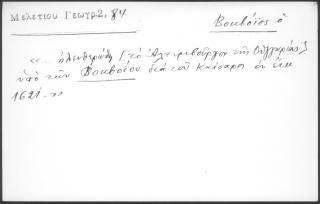 Μελετίου Γεωγρ 2, 84
Βουκβόϊος ὁ
«... ἠλευθερώθη [τὸ Ἀλτεμβοῦργον τῆς Οὐγγαρίας]
ὑπὸ τῶν Βουκβοίου διὰ τοῦ Καίσαρος ἐν ἔτει
1621.»